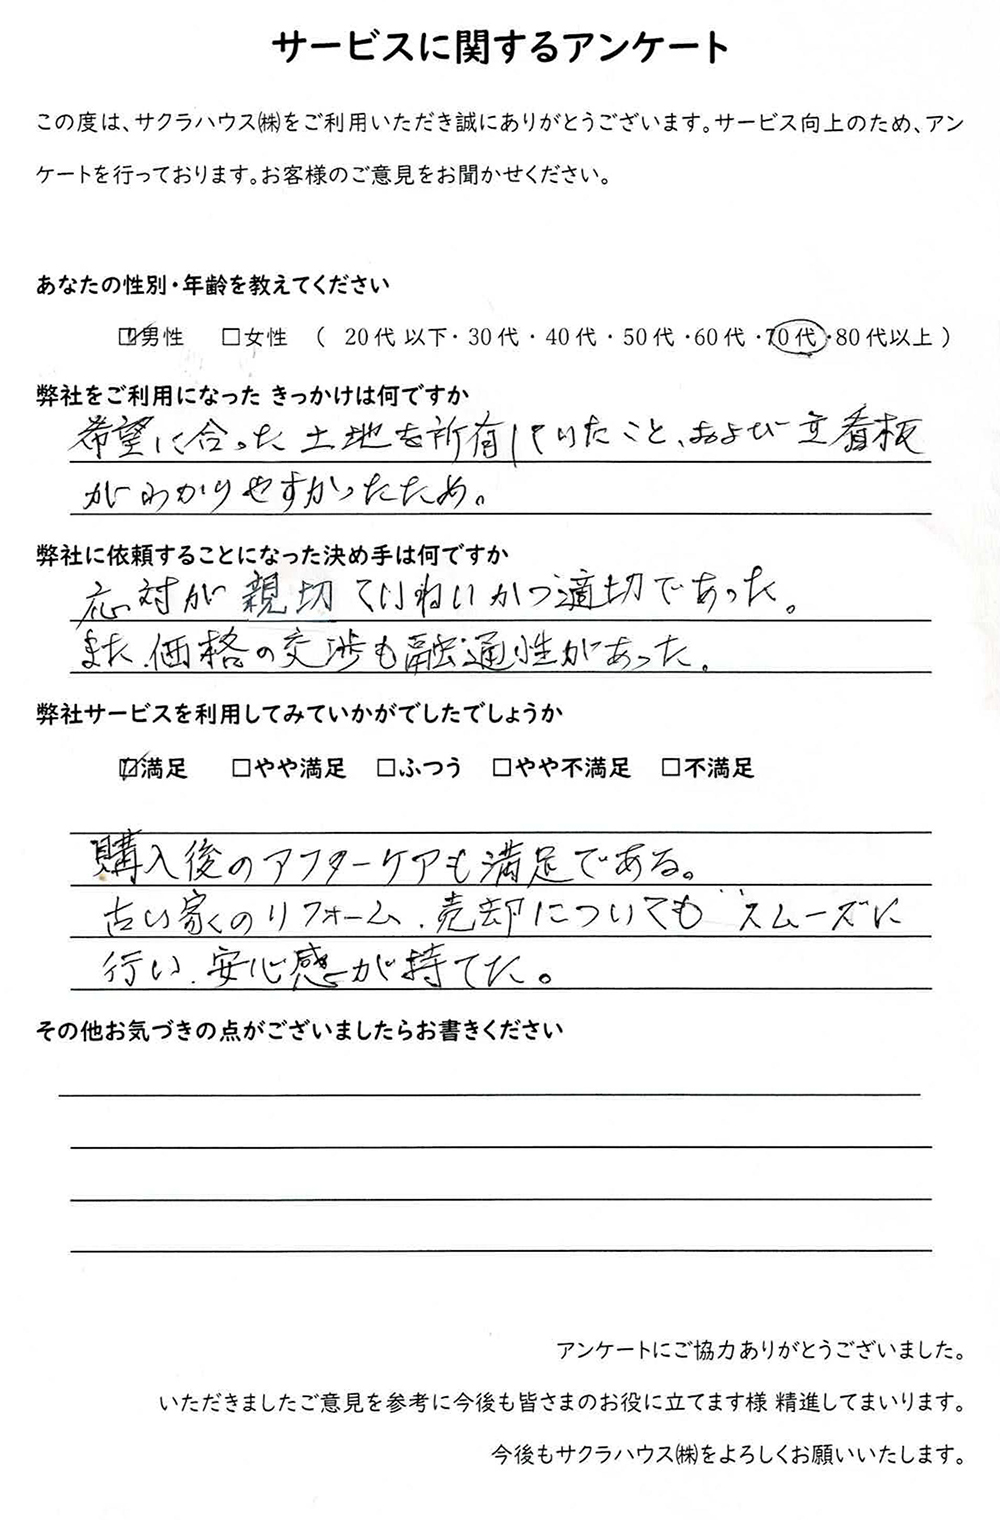 サービスに関するアンケート
この度は、サクラハウス㈱をご利用いただき誠にありがとうございます。サービス向上のため、アン
ケートを行っております。お客様のご意見をお聞かせください。
あなたの性別・年齢を教えてください
☑男性 □女性 ( 20代 以下・30代・40代・50代・60代・70代・80代以上 )
弊社をご利用になった きっかけは何ですか
希望に合った土地を所有していたこと、および立看板
がわかりやすかったため。
弊社に依頼することになった決め手は何ですか
応対が親切ていねいかつ適切であった。
また、価格の交渉も融通性があった。
弊社サービスを利用してみていかがでしたでしょうか
☑満足 □やや満足 □ふつう □やや不満足 □不満足
購入後のアフターケアも満足である。
古い家のリフォーム、売却についてもスムーズに
行い、安心感が持てた。
その他お気づきの点がございましたらお書きください
アンケートにご協力ありがとうございました。
いただきましたご意見を参考に今後も皆さまのお役に立てます様 精進してまいります。
今後もサクラハウス㈱をよろしくお願いいたします。